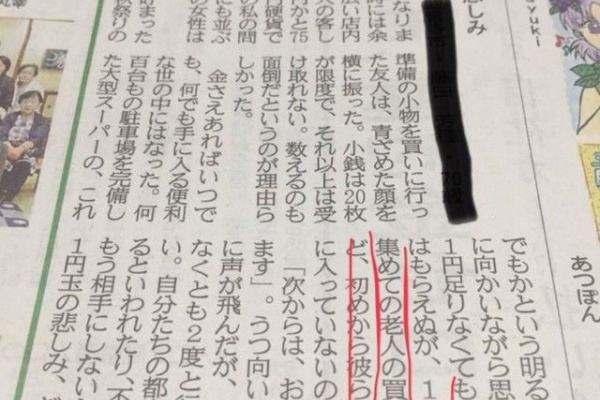 ayuki
あつぽん
悲しみ
なりま
時には余
広い店内
人の客し
円かと75
硬貨で
の私の間
にも並ぶ
の女性は
貯まった
秋祭りの
準備の小物を買いに行っ
た友人は、青ざめた顔を
横に振った。小銭は20枚
が限度で、それ以上は受
け取れない。数えるのも
面倒だというのが理由ら
しかった。
金さえあればいつで
も、何でも手に入る便利
な世の中にはなった。何
百台もの駐車場を完備し
た大型スーパーの、これ
でもかという明る
に向かいながら思
1円足りなくても
はもらえぬが、1
集めての老人の買
ど、初めから彼ら
に入っていないの
「次からは、お
ます」。うつ向い
に声が飛んだが、
なくとも2度と行
い。自分たちの都
るといわれたり、不
もう相手にしない
1円玉の悲しみ、ど